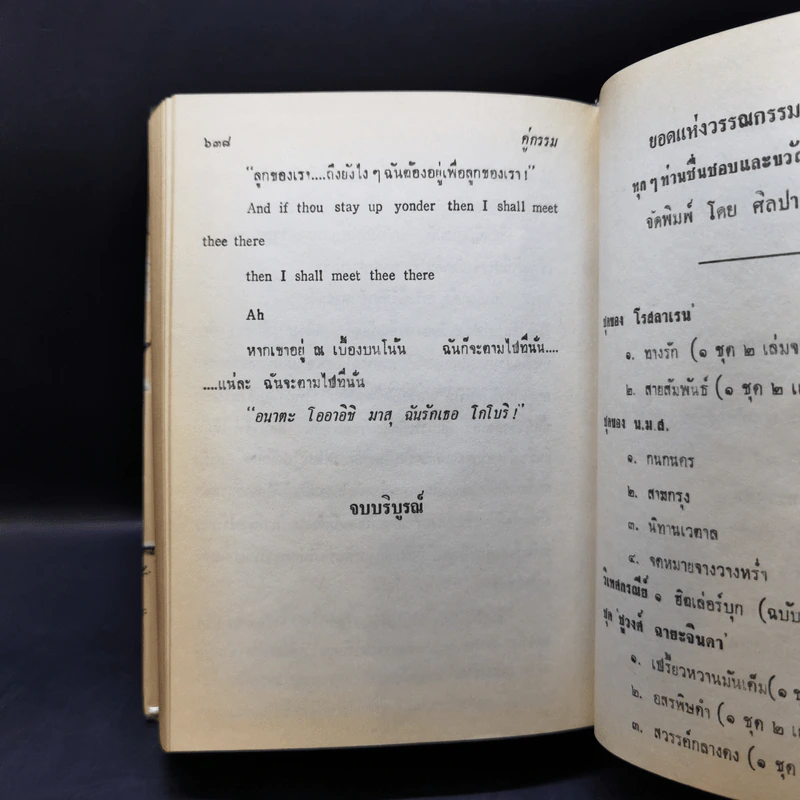 ๖๓๘ คู่กรรม
"ลูกของเรา....ถึงยังไง ๆ ฉันต้องอยู่เพื่อลูกของเรา!"
And if thou stay up yonder then I shall meet
thee there
then I shall meet thee there
Ah
หากเขาอยู่ ณ เบื้องบนโน้น ฉันก็จะตามไปที่นั่น....
....แน่ละ ฉันจะตามไปที่นั่น
"อนาตะ โออาอิชิ มาสุ ฉันรักเธอ โกโบริ!"
จบบริบูรณ์
ยอดแห่งวรรณกรรม
ทุก ๆ ท่านชื่นชอบและ
จัดพิมพ์ โดย ศิลปา
ชุดของ โรสลาเรน
๑. ทางรัก (๑ ชุด ๒ เล่มจ
๒. สายสัมพันธ์ (๑ ชุด ๒ เ
ชุดของ น.ม.ส.
๑. กนกนคร
๒. สามกรุง
๓. นิทานเวตาล
๔. จดหมายจางวางหร่ำ
๑ ฮิตเล่อร์บุก (ฉบับ
ชุด 'ชูวงศ์ ฉายะจินดา'
๑. เปรี้ยวหวานมันเค็ม(๑ ช
๒. อสรพิษดำ (๑ ชุด ๒ เ
๓. สวรรค์กลางดง (๑ ชุด